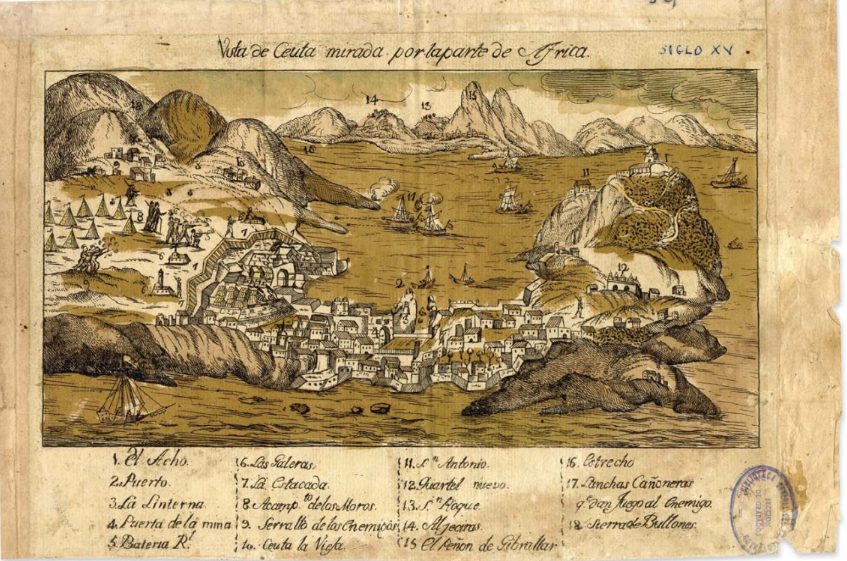 Vista de Ceuta mirada por la parte de Africa.
SIGLO XV
1. El Acho.
2. Puerto.
3. La Linterna
4. Puerta de la mina
5. Bateria Rl.
6. Las Galeras.
7. La Estacada.
8 Acamp.to de los Moros.
9. Serrallo de los Enemigos
10. Ceuta la Vieja
11. Sn. Antonio.
12. Quartel nuevo.
13. Sn. Roque
14. Algeciras
15 El Peñon de Gibraltar
16. Estrecho
17. Lanchas Cañoneras
q.e dan fuego al Enemigo.
18. Sierra de Bullones.